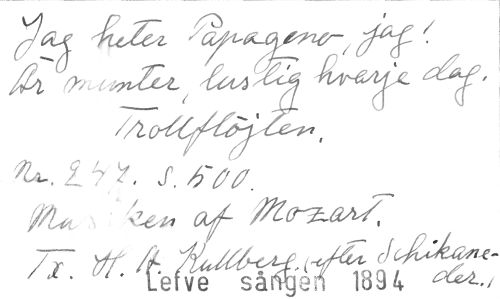 Jag heter Papageno, jag!
Är munter, lustig hvarje dag.
Trollflöjten.
Nr. 247. S. 500.
Musiken af Mozart.
Tx. H. A. Kullberg, (efter Schikane-
der.)
Lefve sången 1894